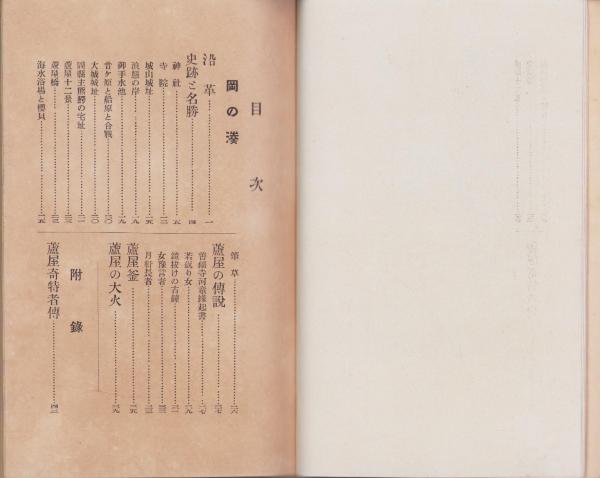 目次
岡の湊
沿革…………一
史跡と名勝…………四
神社…………五
寺院…………一三
城山城址…………一五
浪懸の岸…………一九
御手水池…………一九
岩ケ原と船原と合戦…………二〇
大城城址…………二〇
岡縣主熊鰐の宅址…………二一
蘆屋十二景…………二二
蘆屋橋…………二三
海水浴場と櫻貝…………二五
筆草…………二六
蘆屋の傳說…………二七
善福寺河童緣起書…………二七
若返り女…………二九
鐘拔けの古鐘…………三一
女豫言者…………三二
月軒長者…………三三
蘆屋釜…………三五
蘆屋の大火…………三九
附錄
蘆屋奇特者傳…………四三